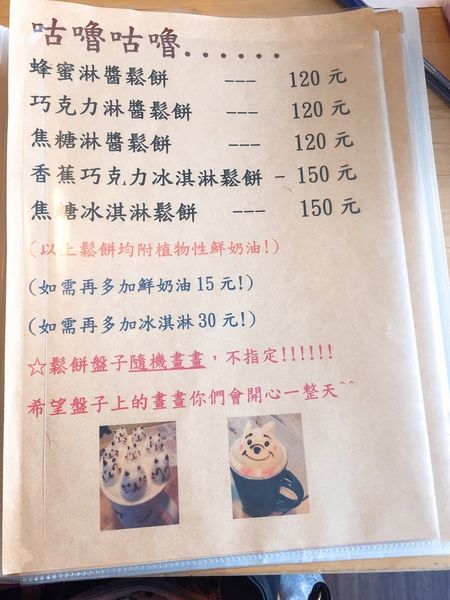 咕嚕咕嚕......
蜂蜜淋醬鬆餅 --- 120 元
巧克力淋醬鬆餅 --- 120 元
焦糖淋醬鬆餅 --- 120 元
香蕉巧克力冰淇淋鬆餅 - 150 元
焦糖冰淇淋鬆餅 --- 150 元
(以上鬆餅均附植物性鮮奶油!)
(如需再多加鮮奶油 15 元!)
(如需再多加冰淇淋 30 元!)
☆鬆餅盤子隨機畫畫，不指定!!!!!!
希望盤子上的畫畫你們會開心一整天^^